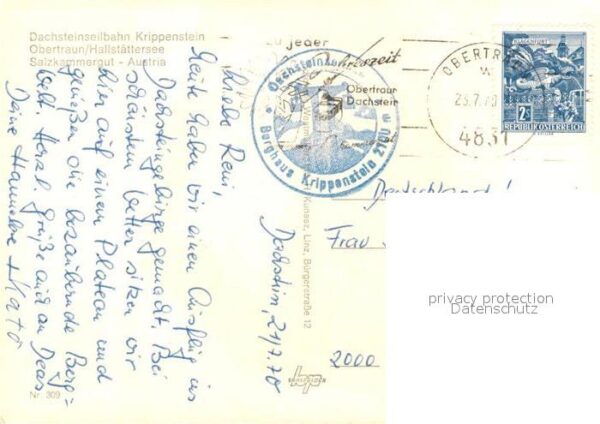 Dachsteinseilbahn Krippenstein
Obertraun/Hallstättersee
Salzkammergut - Austria
Liebe Reni,
heute haben wir einen Ausflug ins
Dachsteingebirge gemacht. Bei
schönstem Wetter sitzen wir
hier auf einem Plateau und
grüßen die bezaubernde Berg=
welt. Herzl. Grüße auch an
Deine Hannelore +
Dachstein, 21.7.70
Nr. 309
zu jeder
Jahreszeit
Obertraun
Dachstein
Berghaus Krippenstein 2100
OBERTRAUN
23.7.70
4831
KLAGENFURT
2S
REPUBLIK ÖSTERREICH
Linz, Bürgerstraße 12
Deutschland
Frau
2000
privacy protection
Datenschutz